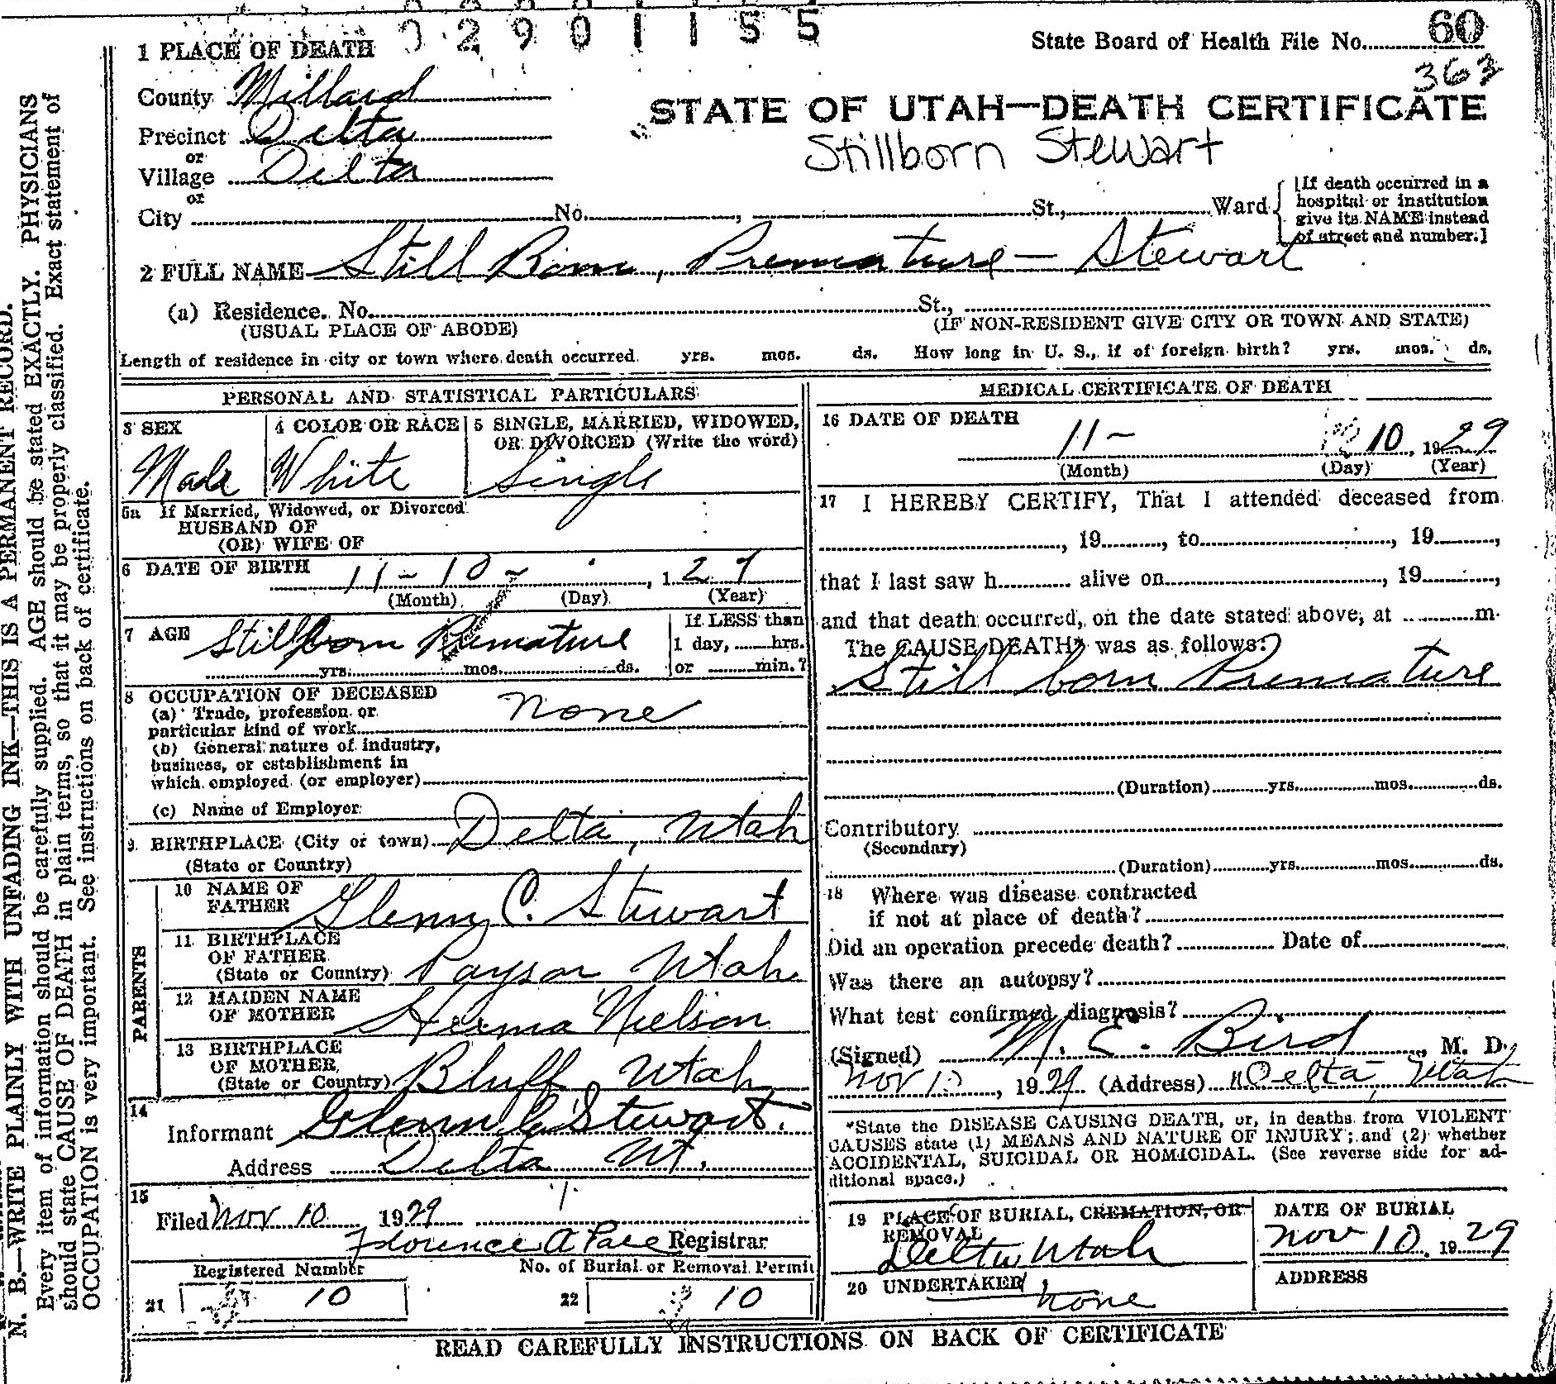 2901155
State Board of Health File No. 60
363
1 PLACE OF DEATH
County Millard
STATE OF UTAH—DEATH CERTIFICATE
Precinct Delta
or
Stillborn Stewart
Village Delta
or
City No. , St., Ward
[If death occurred in a hospital or institution give its NAME instead of street and number.]
2 FULL NAME Still Born, Premature — Stewart
(a) Residence. No. St.,
(USUAL PLACE OF ABODE) (IF NON-RESIDENT GIVE CITY OR TOWN AND STATE)
Length of residence in city or town where death occurred yrs. mos. ds. How long in U. S., if of foreign birth? yrs. mos. ds.
PERSONAL AND STATISTICAL PARTICULARS
3 SEX
Male
4 COLOR OR RACE
White
5 SINGLE, MARRIED, WIDOWED,
OR DIVORCED (Write the word)
Single
5a If Married, Widowed, or Divorced
HUSBAND OF
(OR) WIFE OF
6 DATE OF BIRTH 11-10- , 1 29
(Month) (Day) (Year)
7 AGE Stillborn Premature
yrs. mos. ds.
If LESS than
1 day, hrs.
or min.?
8 OCCUPATION OF DECEASED
(a) Trade, profession or
particular kind of work None
(b) General nature of industry,
business, or establishment in
which employed (or employer)
(c) Name of Employer
9 BIRTHPLACE (City or town) Delta, Utah
(State or Country)
PARENTS
10 NAME OF
FATHER Glenn C. Stewart
11 BIRTHPLACE
OF FATHER
(State or Country) Payson Utah
12 MAIDEN NAME
OF MOTHER Herma Nielson
13 BIRTHPLACE
OF MOTHER
(State or Country) Bluff, Utah
14
Informant Glenn C. Stewart.
Address Delta Ut.
15
Filed Nov 10 1929
Florence A Pace Registrar
Registered Number No. of Burial or Removal Permit
21 10 22 10
MEDICAL CERTIFICATE OF DEATH
16 DATE OF DEATH
11- 10, 1929
(Month) (Day) (Year)
17 I HEREBY CERTIFY, That I attended deceased from
, 19 , to , 19 ,
that I last saw h alive on , 19 ,
and that death occurred, on the date stated above, at m.
The CAUSE DEATH* was as follows:
Still born Premature
(Duration) yrs. mos. ds.
Contributory
(Secondary)
(Duration) yrs. mos. ds.
18 Where was disease contracted
if not at place of death?
Did an operation precede death? Date of
Was there an autopsy?
What test confirmed diagnosis?
(Signed) M. E. Bird , M. D.
Nov , 1929 (Address) Delta, Utah
*State the DISEASE CAUSING DEATH, or, in deaths from VIOLENT
CAUSES state (1) MEANS AND NATURE OF INJURY; and (2) whether
ACCIDENTAL, SUICIDAL OR HOMICIDAL. (See reverse side for ad-
ditional space.)
19 PLACE OF BURIAL, CREMATION, OR
REMOVAL
Delta Utah
DATE OF BURIAL
Nov 10, 1929
20 UNDERTAKER
none
ADDRESS
READ CAREFULLY INSTRUCTIONS ON BACK OF CERTIFICATE
N. B.—WRITE PLAINLY WITH UNFADING INK—THIS IS A PERMANENT RECORD.
Every item of information should be carefully supplied. AGE should be stated EXACTLY. PHYSICIANS
should state CAUSE OF DEATH in plain terms, so that it may be properly classified. Exact statement of
OCCUPATION is very important. See instructions on back of certificate.